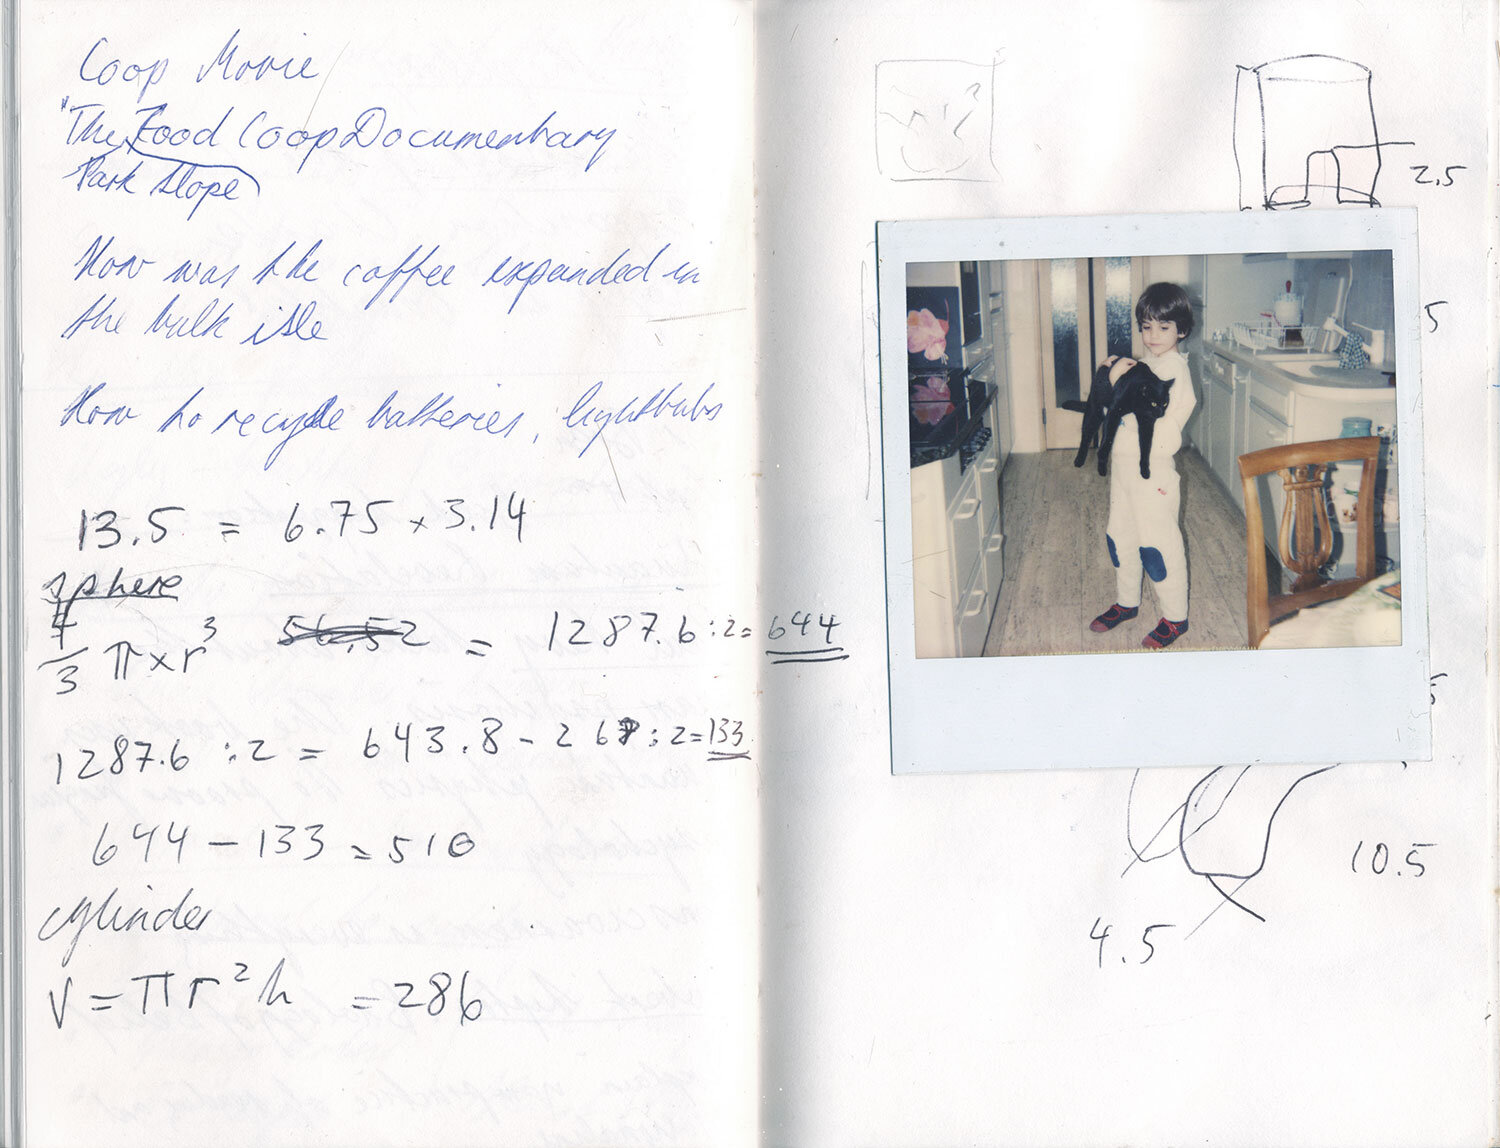 Coop Movie
"The Food Coop Documentary
Park Slope
How was the coffee expanded in
the bulk isle
How to recycle batteries, lightbubs
13.5 = 6.75 x 3.14
sphere
4/3 π x r³ 56.52 = 1287.6 : 2 = 644
1287.6 : 2 = 643.8 - 267 : 2 = 133
644 - 133 = 510
cylinder
V = π r² h = 286
2.5
5
5
10.5
4.5